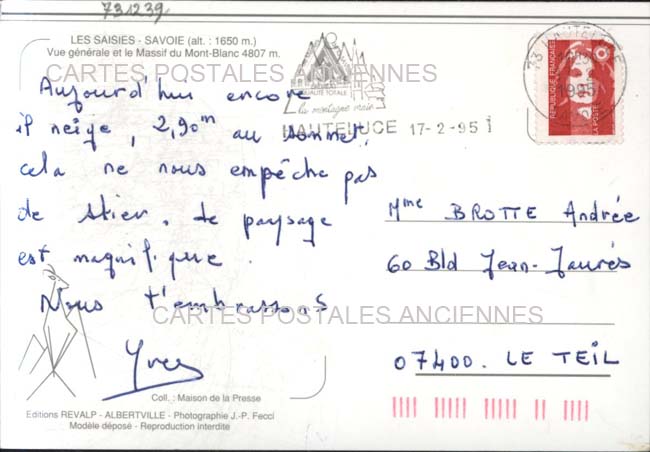 731239
LES SAISIES - SAVOIE (alt. : 1650 m.)
Vue générale et le Massif du Mont-Blanc 4807 m.
CARTES POSTALES ANCIENNES
Aujourd'hui encore
il neige, 2,90m au sommet,
cela ne nous empêche pas
de skier. Le paysage
est magnifique.
Nous t'embrassons
Yves
CARTES POSTALES ANCIENNES
QUALITÉ TOTALE
la montagne vraie
HAUTELUCE 17-2-95
73 HAUTELUCE
1995
REPUBLIQUE FRANÇAISE
LA POSTE
Mme BROTTE Andrée
60 Bld Jean-Jaurès
07400. LE TEIL
Coll. : Maison de la Presse
Editions REVALP - ALBERTVILLE - Photographie J.-P. Fecci
Modèle déposé - Reproduction interdite